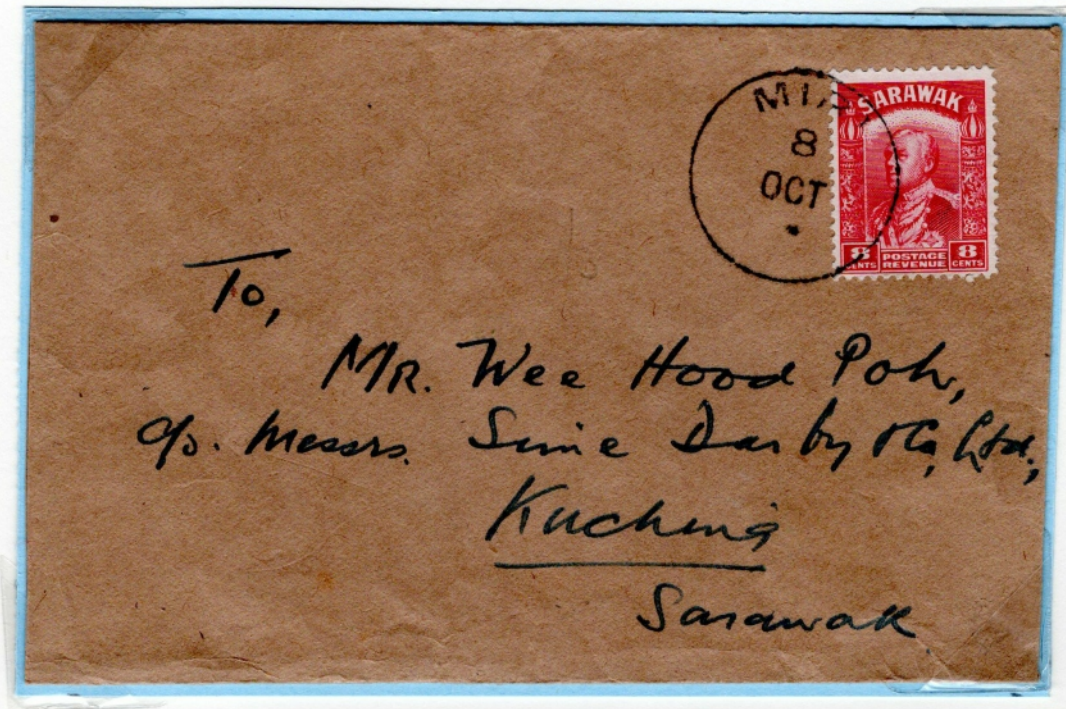 MIRI
8
OCT
SARAWAK
8 CENTS POSTAGE REVENUE 8 CENTS
To,
Mr. Wee Hood Poh,
c/o. Messrs. Sime Darby & Co, Ltd,
Kuching
Sarawak